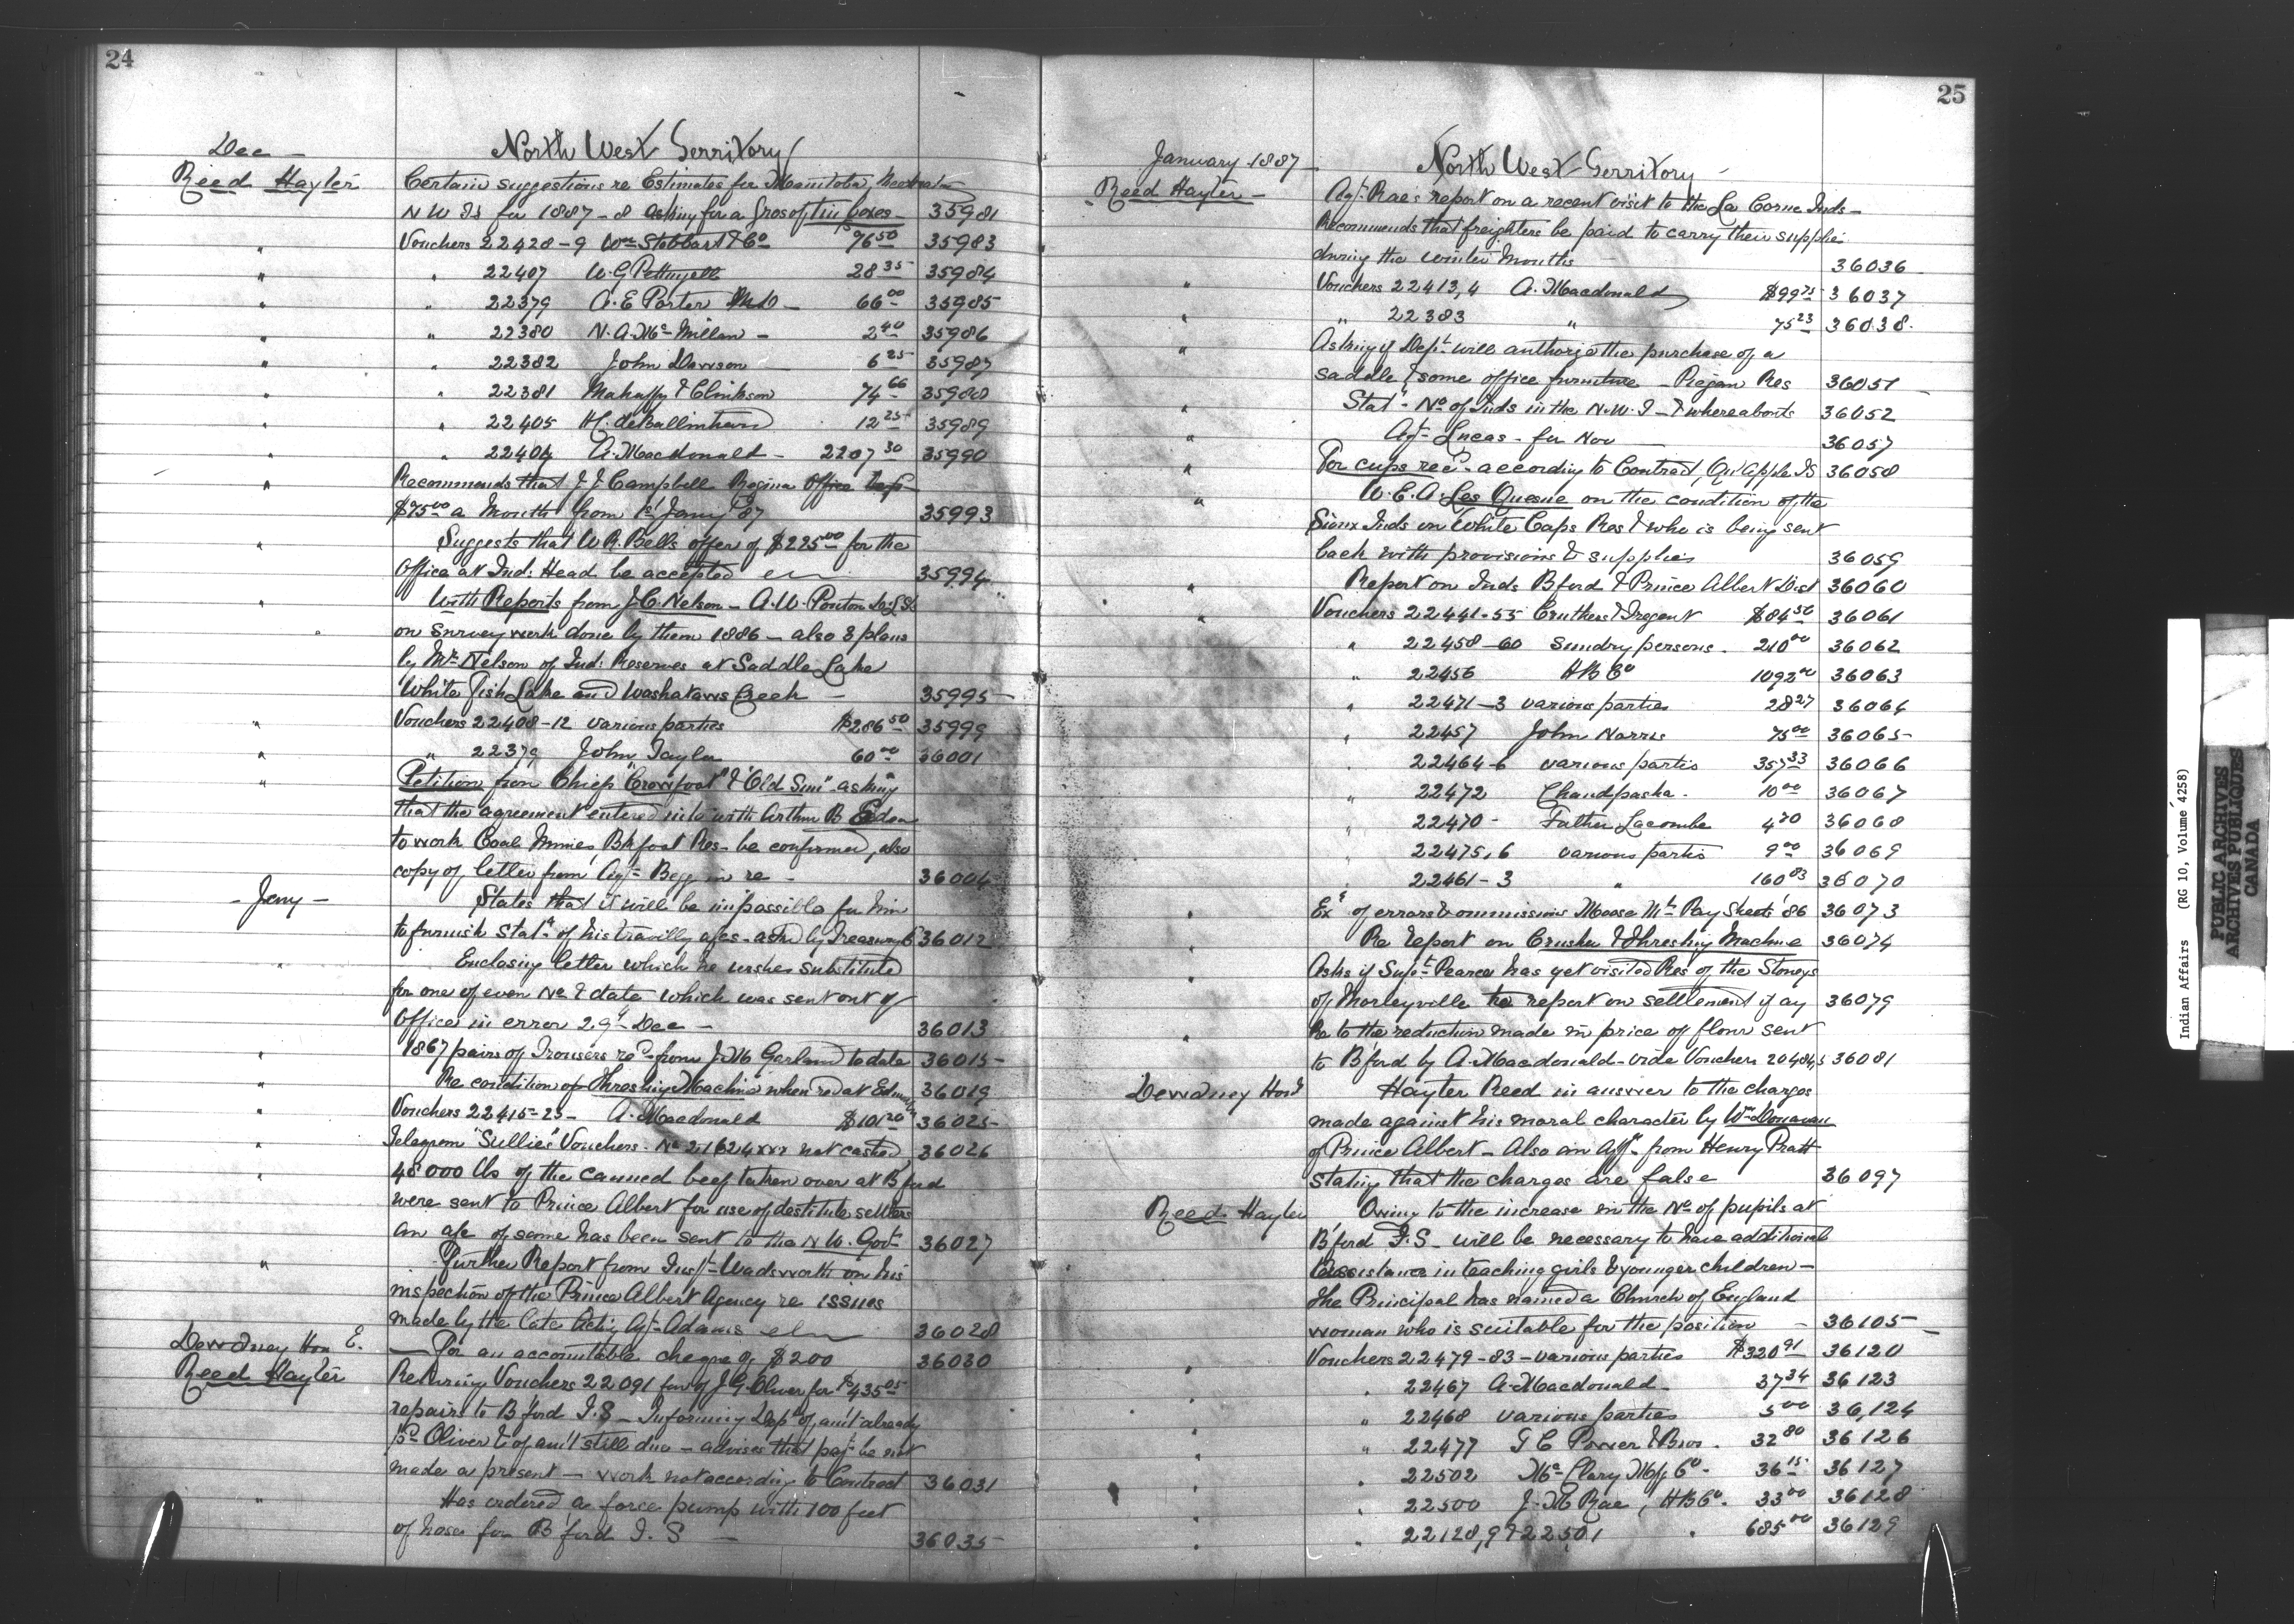 24
Dec -
North West Territory
Reed Hayter
Certain suggestions re Estimates for Manitoba,
N W Ts for 1887-8 asking for a gross of tin boxes - 35981
" Vouchers 22428-9 Wm Stobbart & Co 76 50 35983
" " 22407 W. G. Pettingell 28 35 35984
" " 22379 A. E. Porter 66 00 35985
" " 22380 N. A. McMillan - 2 40 35986
" " 22382 John Dawson 6 25 35987
" " 22381 Mahaffy & Clinkson 74 66 35988
" " 22405 H. de Ballinhard 12 25 35989
" " 22404 A. Macdonald - 2207 30 35990
" Recommends that J J Campbell Regina Office
$75 00 a Month from 1st Jany '87 35993
" Suggests that W. R. Bells offer of $225 00 for the
Office at Ind: Head be accepted 35994
" With Reports from J. C. Nelson - A. W. Ponton D.L.S.
on survey work done by them 1886 - also 8 plans
by Mr Nelson of Ind: Reserves at Saddle Lake
White Fish Lake and Washataws Creek - 35995
" Vouchers 22408-12 various parties $286 50 35999
" " 22379 John Taylor 60 00 36001
" Petition from Chief "Crowfoot" & "Old Sun" asking
that the agreement entered into with Arthur B
to work Coal Mines, Bkfoot Res - be confirmed, also
copy of letter from Agt Begg in re - 36004
- Jany -
States that it will be impossible for him
to furnish Statt of his travelling a/cs - asked by Treasury 36012
" Enclosing letter which he wishes substituted
for one of even No & date which was sent out of
Office in error 29th Dec - 36013
" 1867 pairs of Trousers recd from J. M Garland to date 36015
" Re condition of Threshing Machine when recd at 36019
" Vouchers 22415-25 - A. Macdonald $101 20 36025
" Telegram "Sullies" Vouchers. No 21624 not cashed 36026
" 48000 lbs of the canned beef taken over at B'ford
were sent to Prince Albert for use of destitute settlers
an a/c of same has been sent to the N W. Govt 36027
" Further Report from Inspt Wadsworth on his
inspection of the Prince Albert Agency re issues
made by the late Acting Agt Adams 36028
Dewdney Hon E. - For an accountable cheque of $200 36030
Reed Hayter
Returning Vouchers 22091 favor J. G. Oliver for $435 05
repairs to B'ford I.S - Informing Dept of amt already
pd Oliver & of amt still due - advises that payt be not
made a present - work not according to Contract 36031
" Has ordered a force pump with 100 feet
of hose for B'ford I. S - 36035
25
January 1887
North West Territory
Reed Hayter -
Agt Rae's report on a recent visit to the La Corne Inds -
Recommends that freighters be paid to carry their supplies
during the winter months 36036
" Vouchers 22413,4 A. Macdonald $99 75 36037
" " 22383 " 75 23 36038
" Asking if Dept will authorize the purchase of a
saddle & some office furniture - Piegan Res 36051
" Statt - No of Inds in the N.W. T - & whereabouts 36052
" Agt Lucas - for Nov 36057
" For cups recd - according to Contract, Qu'Apple IS 36058
" W. E. A. Les Quesne on the condition of the
Sioux Inds on White Caps Res & who is being sent
back with provisions & supplies 36059
" Report on Inds B'ford & Prince Albert Dist 36060
" Vouchers 22441-55 Cruthers & Tregent $84 50 36061
" 22458-60 sundry persons - 210 00 36062
" 22456 H B Co 1092 00 36063
" 22471-3 various parties 28 27 36064
" 22457 John Norris 75 00 36065
" 22464-6 various parties 357 33 36066
" 22472 Chandpasha - 10 00 36067
" 22470 - Father Lacombe 4 70 36068
" 22475,6 various parties 9 00 36069
" 22461-3 " 160 83 36070
" Exn of errors & ommissions Moose Mt Pay Sheets '86 36073
" Re report on Crusher & Threshing Machine 36074
" Asks if Supt Pearce has yet visited Res of the Stoneys
of Morleyville to report on settlement if any 36079
" Re to the reduction made in price of flour sent
to B'ford by A. Macdonald - vide Vouchers 20484,5 36081
Dewdney Honl
Hayter Reed in answer to the charges
made against his moral character by Wm Donavan
of Prince Albert - Also an Afft from Henry Pratt
stating that the charges are false 36097
Reed Hayter
Owing to the increase in the No of pupils at
B'ford I.S - will be necessary to have additional
assistance in teaching girls & younger children -
the Principal has named a Church of England
woman who is suitable for the position - 36105
" Vouchers 22479-83 - various parties $320 91 36120
" 22467 A. Macdonald - 37 34 36123
" 22468 various parties 5 00 36,124
" 22477 I G Power & Bros. 32 80 36126
" 22502 McClary Mfg Co - 36 15 36127
" 22500 J. McRae, H B Co. 33 00 36128
" 22128,9 & 22501 " 685 00 36129
Indian Affairs (RG 10, Volume 4258)
PUBLIC ARCHIVES
ARCHIVES PUBLIQUES
CANADA